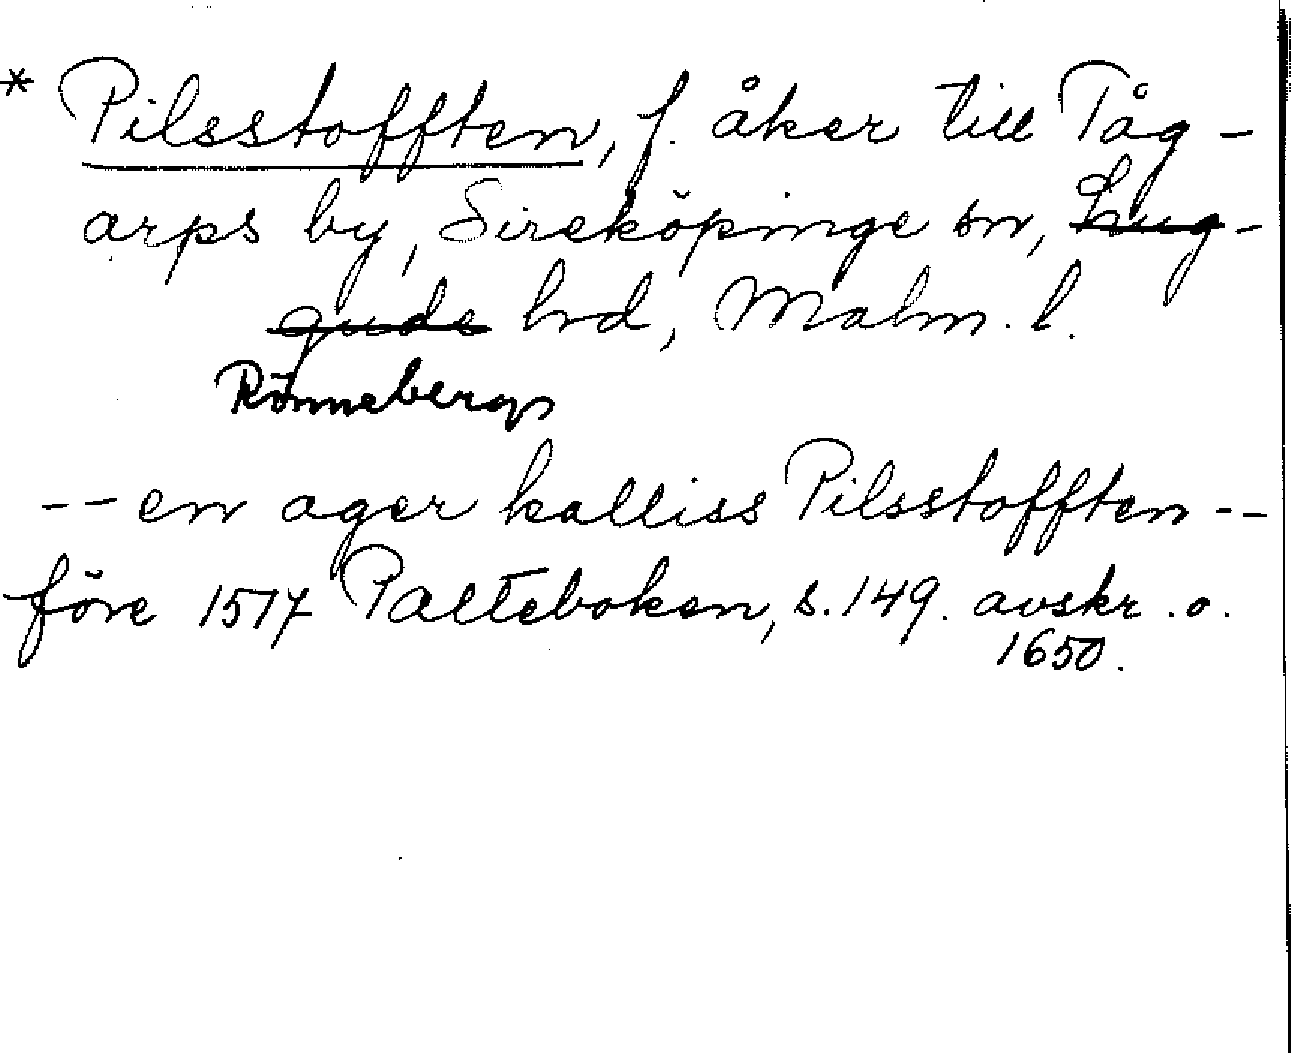 * Pilsstofften, f. åker till Tåg-
arps by, Sireköpinge sn, Lug-
gude hrd, Malm. l.
Rönnebergs
-- en ager kalliss Pilsstofften --
före 1517 Palteboken, s. 149. avskr. o.
1650.